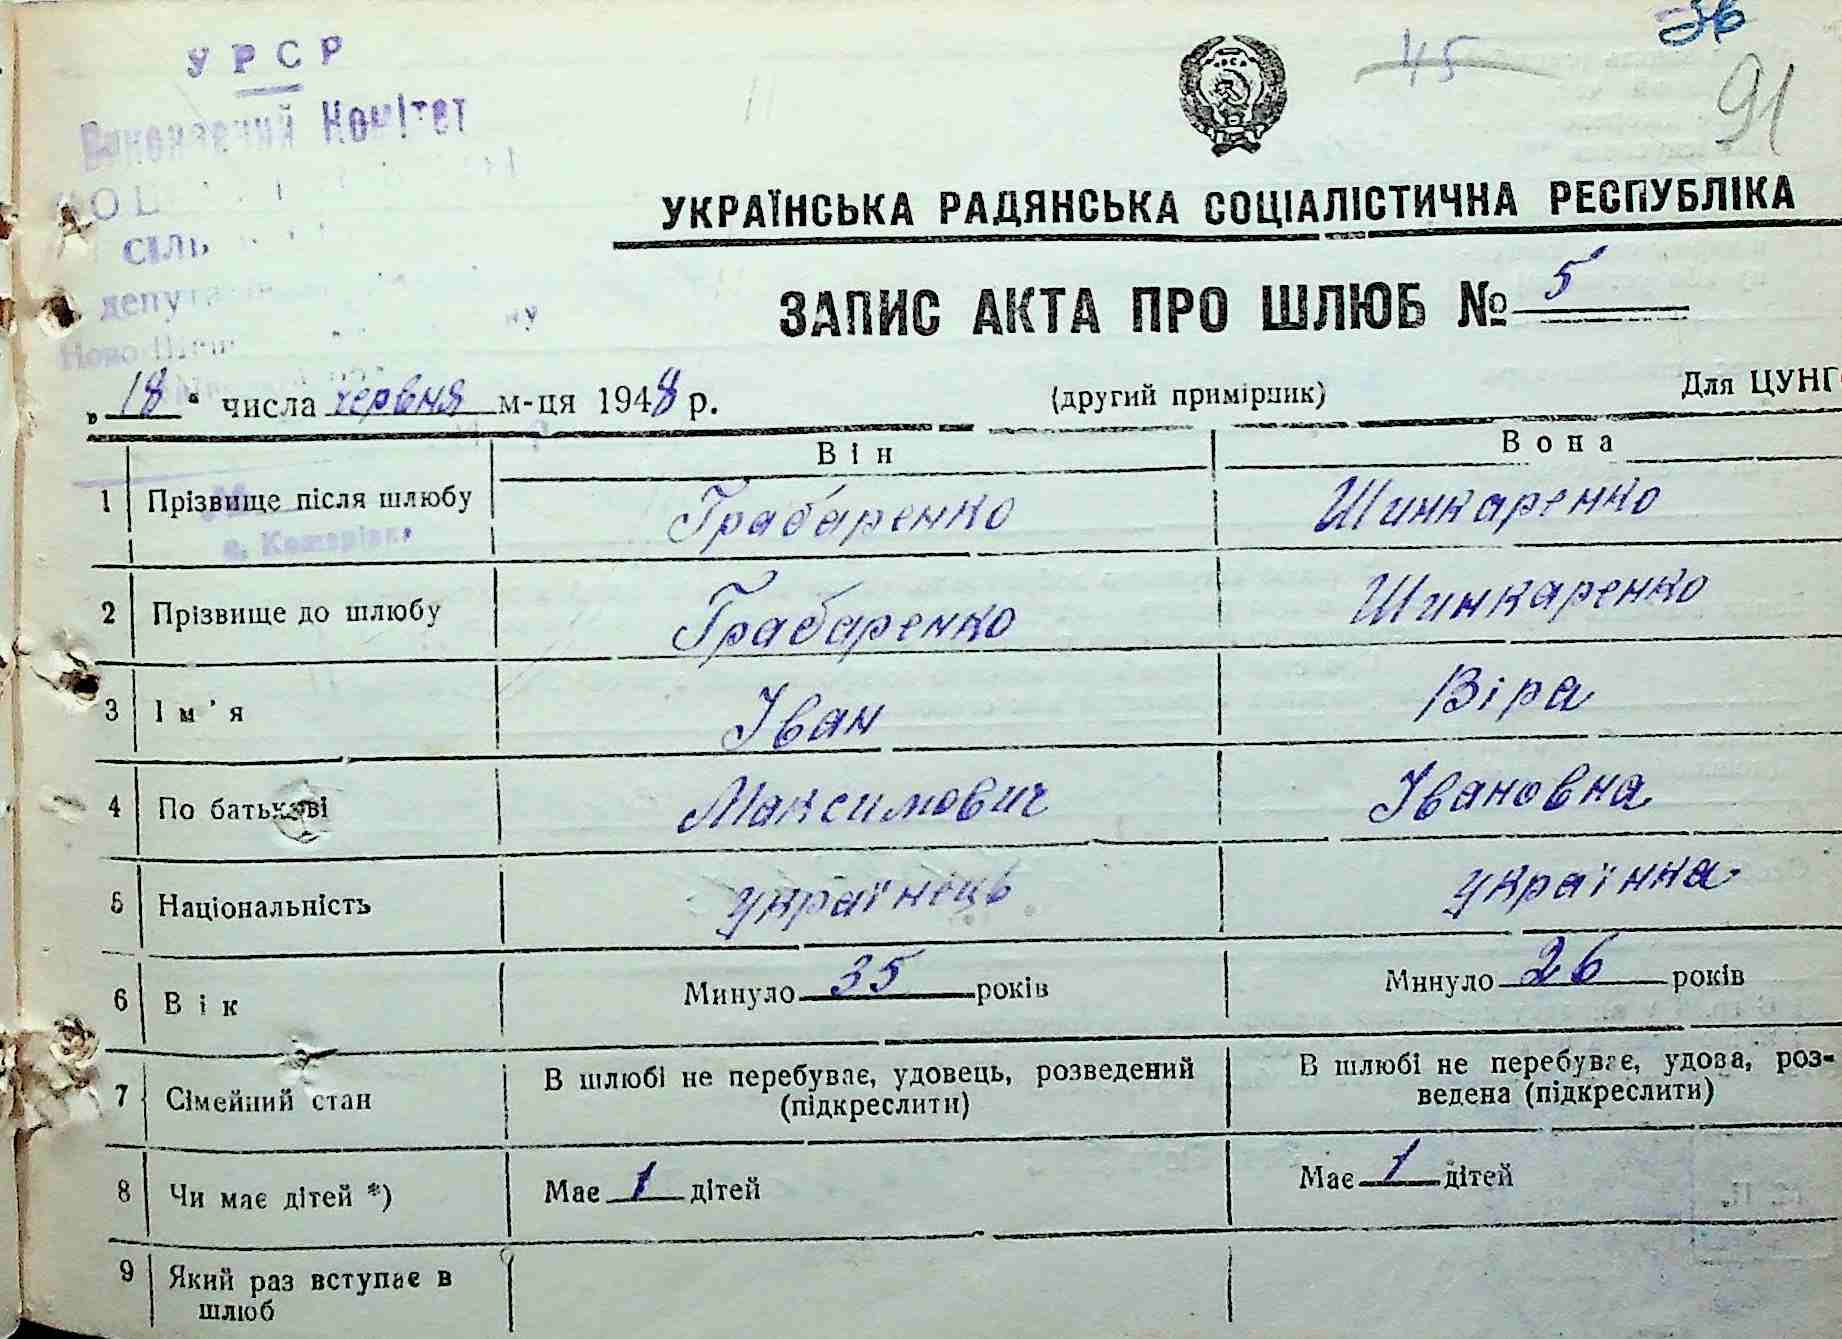 УРСР
Виконавчий Комітет
депутатів
45
36
91
УКРАЇНСЬКА РАДЯНСЬКА СОЦІАЛІСТИЧНА РЕСПУБЛІКА
ЗАПИС АКТА ПРО ШЛЮБ № 5
„18“ числа червня м-ця 1948 р. (другий примірник) Для ЦУНГО
Він Вона
1 Прізвище після шлюбу Грабаренко Шинкаренко
2 Прізвище до шлюбу Грабаренко Шинкаренко
3 Ім'я Іван Віра
4 По батькові Максимович Івановна
5 Національність українець українка
6 Вік Минуло 35 років Минуло 26 років
7 Сімейний стан В шлюбі не перебуває, удовець, розведений В шлюбі не перебуває, удова, роз-
(підкреслити) ведена (підкреслити)
8 Чи має дітей *) Має 1 дітей Має 1 дітей
9 Який раз вступає в
шлюб